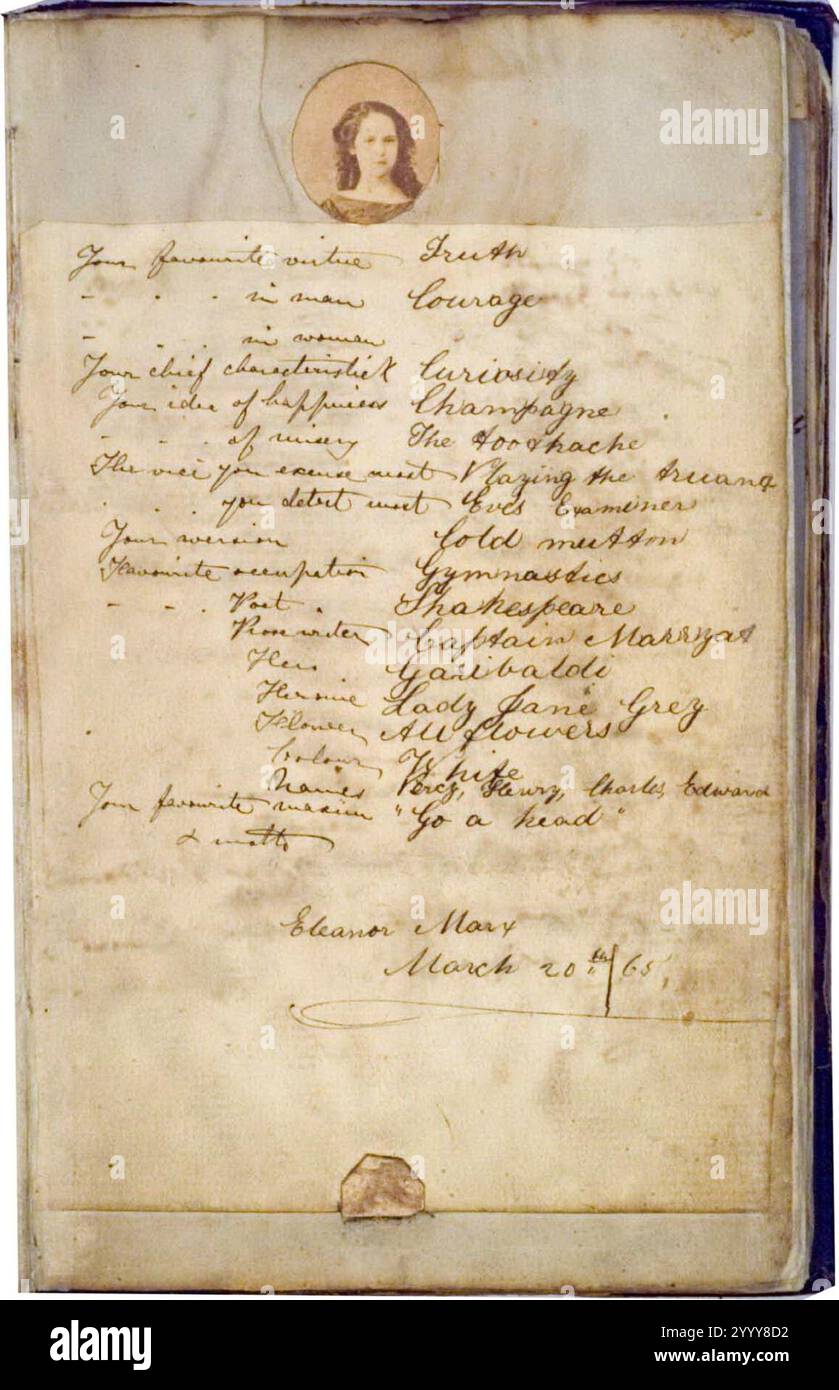 Your favourite virtue Truth
- . . in man Courage
- . . in woman
Your chief characteristick Curiosity
Your idea of happiness Champagne
- . . of misery The toothache
The vice you excuse most Playing the truant
. . . you detest most Eves Examiner
Your aversion Cold mutton
Favourite occupation Gymnastics
- - . Poet . Shakespeare
Prose writer Captain Marryat
Hero Garibaldi
Heroine Lady Jane Grey
Flower All flowers
Colour White
Names Percy, Henry, Charles, Edward
Your favourite maxim "Go a head"
& motto
Eleanor Marx
March 20th/65,
alamy
a
alamy
Image ID: YYY8D2
www.alamy.com